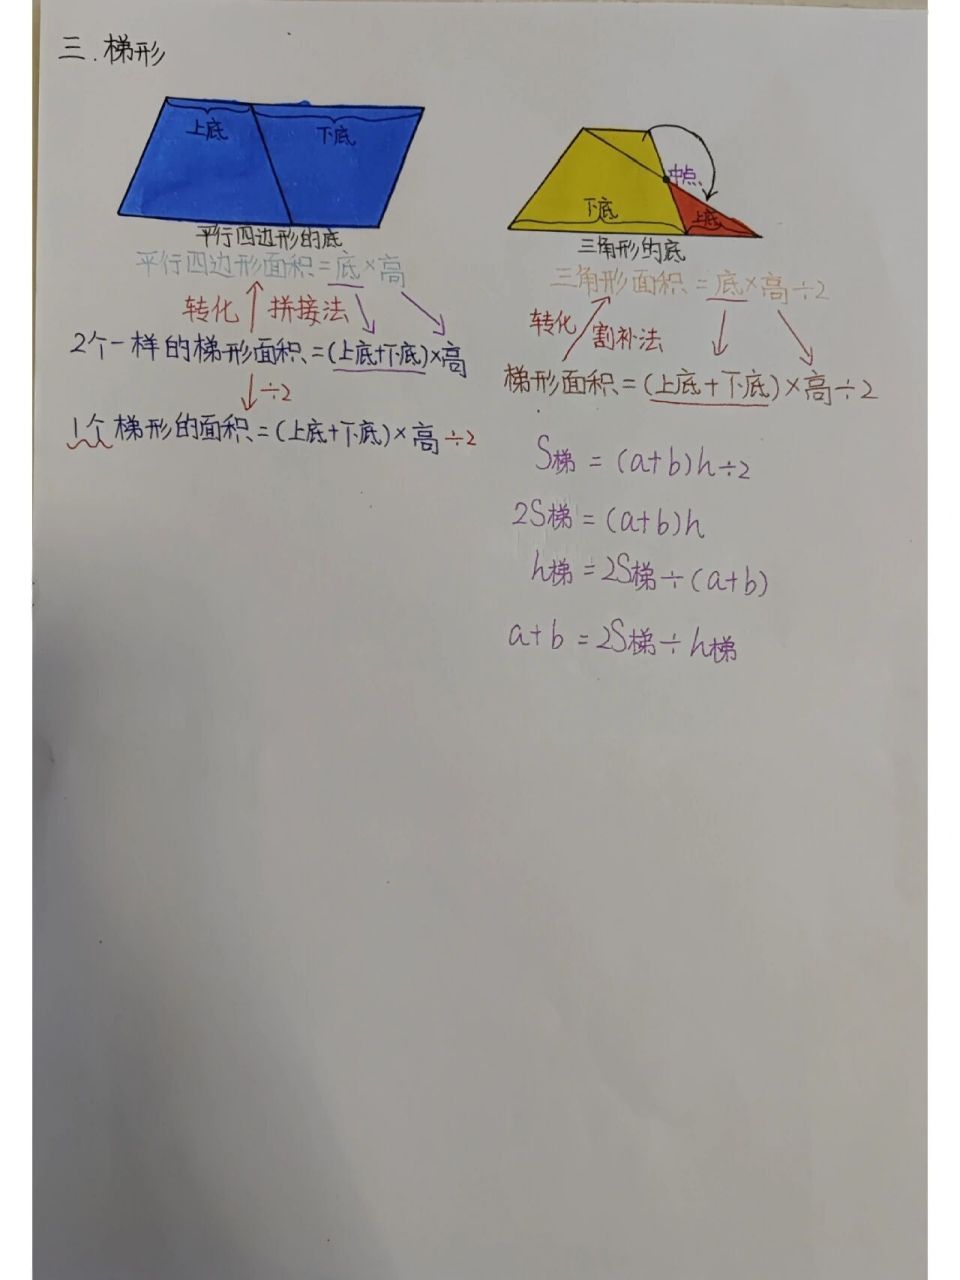 三.梯形
上底 下底
平行四边形的底
平行四边形面积=底×高
转化 拼接法
2个一样的梯形面积=(上底+下底)×高
÷2
1个梯形的面积=(上底+下底)×高÷2
中点
下底 上底
三角形的底
三角形面积=底×高÷2
转化 割补法
梯形面积=(上底+下底)×高÷2
S梯=(a+b)h÷2
2S梯=(a+b)h
h梯=2S梯÷(a+b)
a+b=2S梯÷h梯